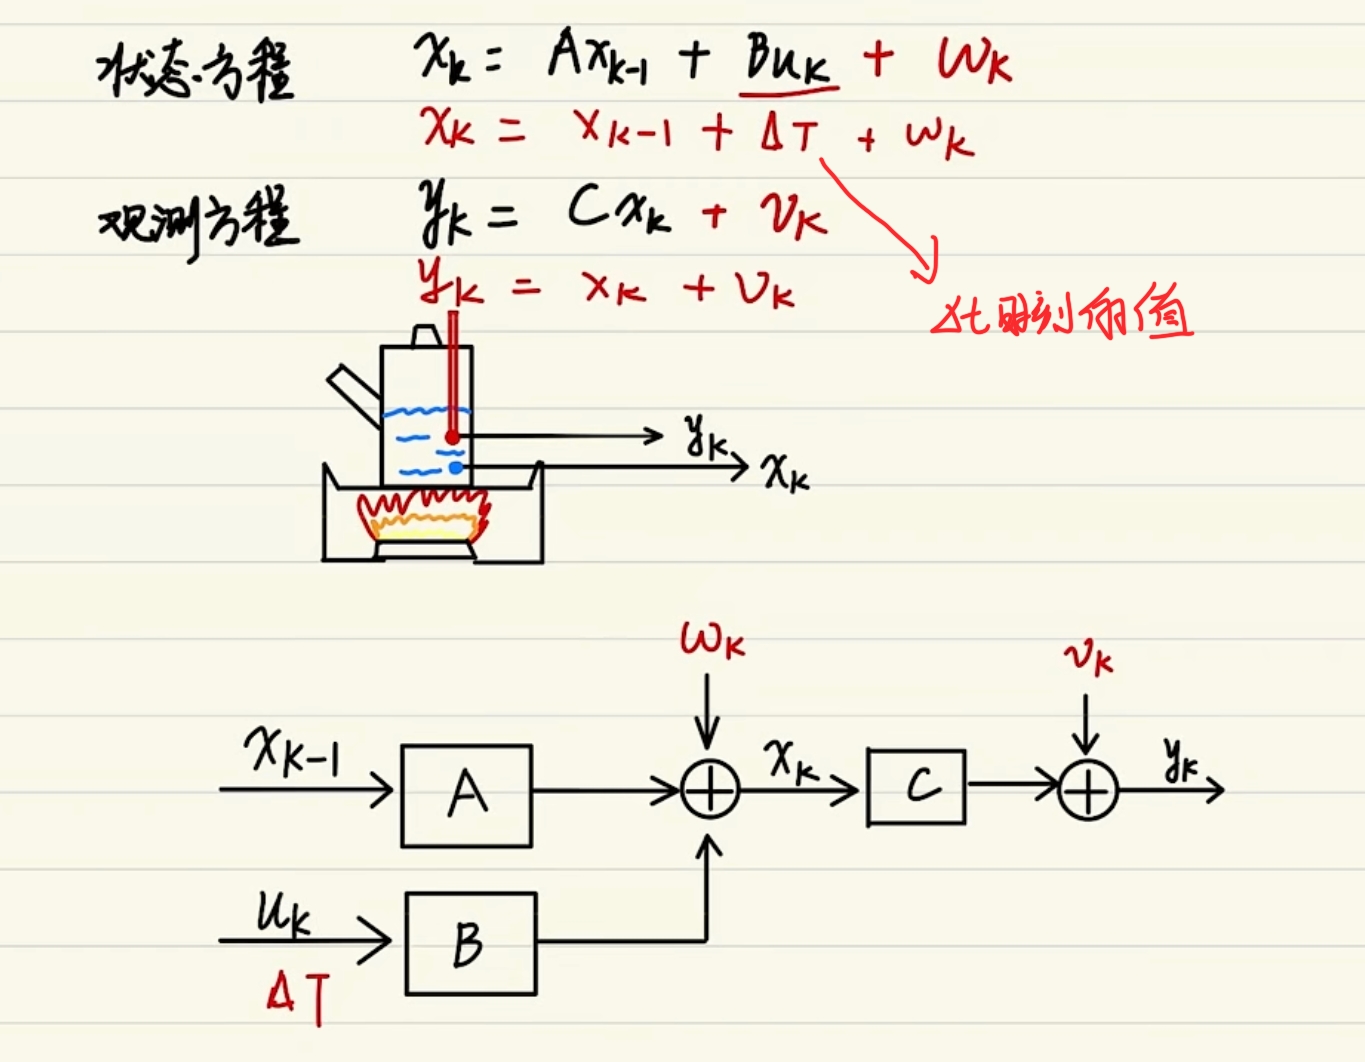 状态方程 xₖ = Axₖ₋₁ + Buₖ + wₖ
xₖ = xₖ₋₁ + ΔT + wₖ
观测方程 yₖ = Cxₖ + vₖ
yₖ = xₖ + vₖ
此时刻的值
yₖ
xₖ
wₖ
vₖ
xₖ₋₁
A
xₖ
C
yₖ
uₖ
B
ΔT